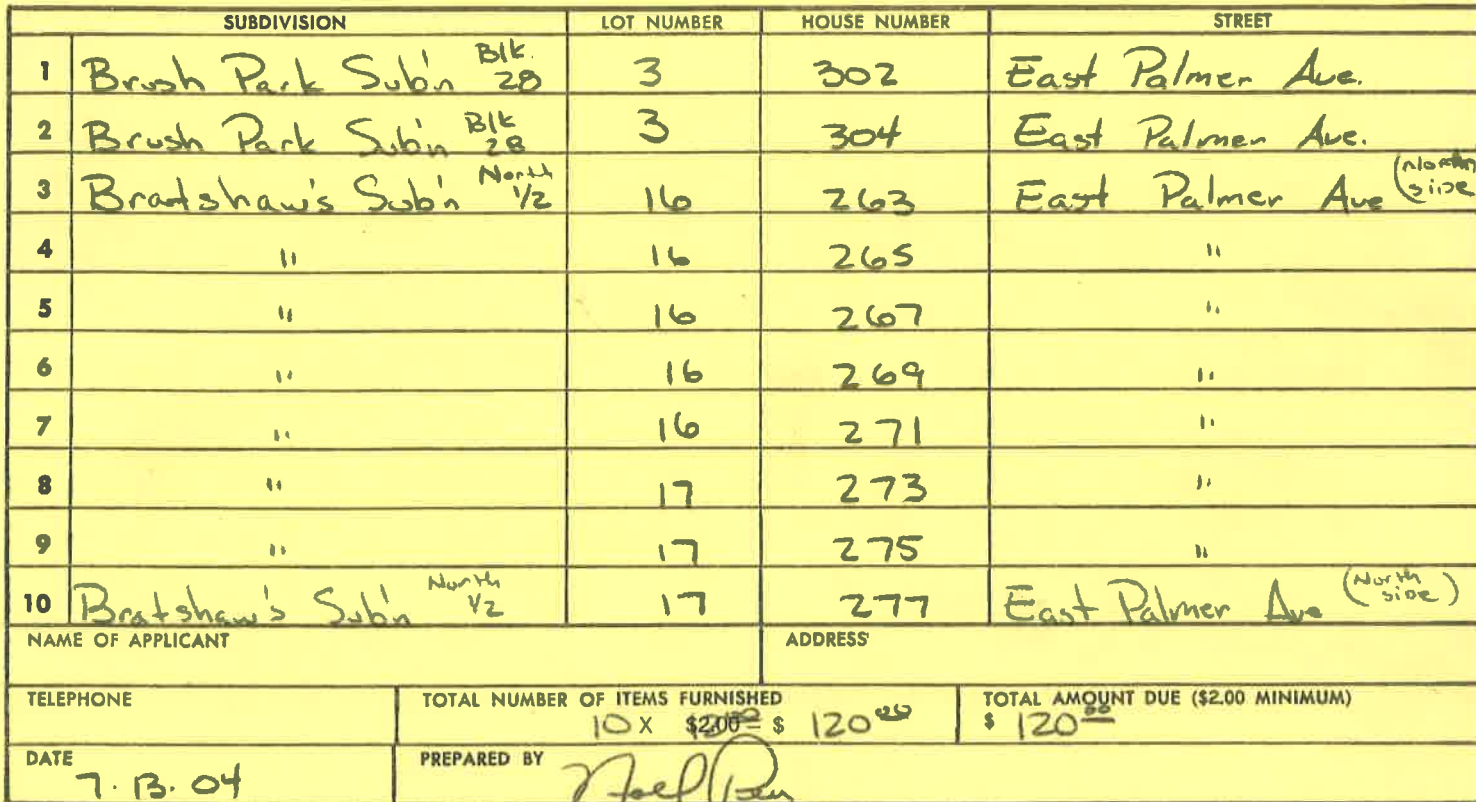 SUBDIVISION LOT NUMBER HOUSE NUMBER STREET
1 Brush Park Sub'n Blk. 28 3 302 East Palmer Ave.
2 Brush Park Sub'n Blk 28 3 304 East Palmer Ave.
3 Bradshaw's Sub'n North 1/2 16 263 East Palmer Ave (North side
4 " 16 265 "
5 " 16 267 "
6 " 16 269 "
7 " 16 271 "
8 " 17 273 "
9 " 17 275 "
10 Bratshaw's Sub'n North 1/2 17 277 East Palmer Ave (North side)
NAME OF APPLICANT ADDRESS
TELEPHONE TOTAL NUMBER OF ITEMS FURNISHED TOTAL AMOUNT DUE ($2.00 MINIMUM)
10 X $2.00 = $ 120 00 $ 120 00
DATE PREPARED BY
7.13.04